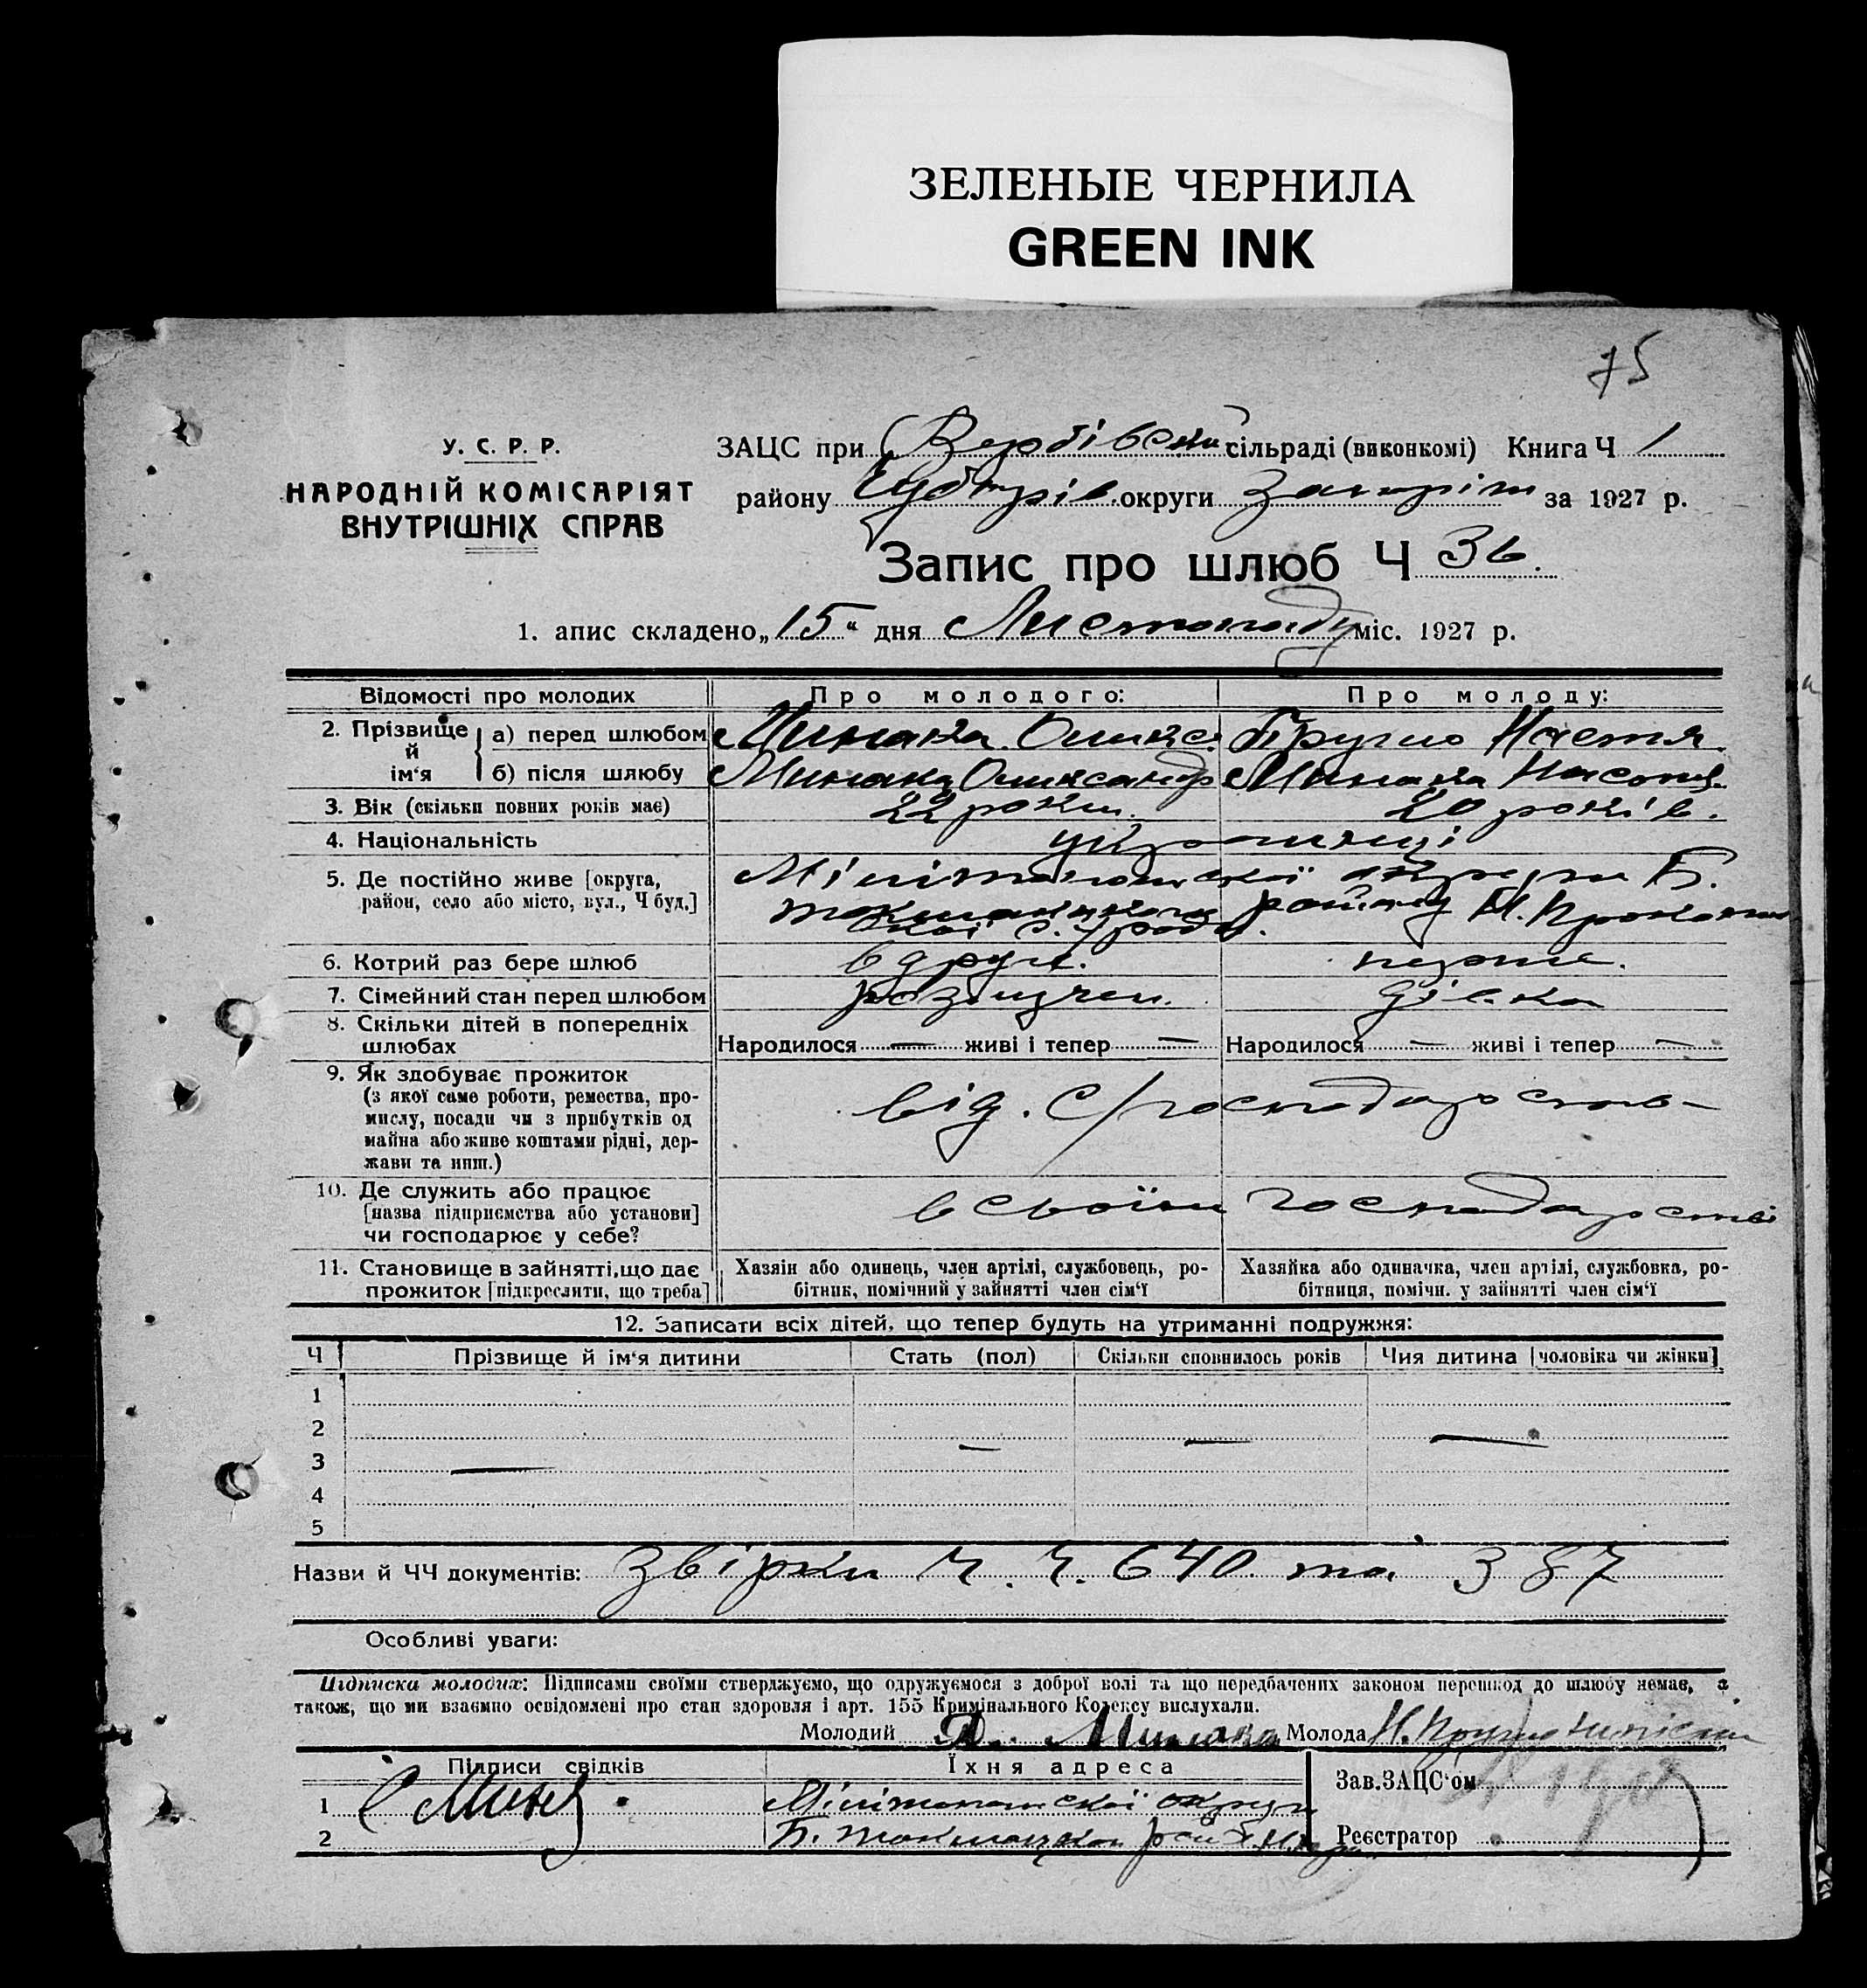 ЗЕЛЕНЫЕ ЧЕРНИЛА
GREEN INK
75
У. С. Р. Р.
НАРОДНІЙ КОМІСАРІЯТ
ВНУТРІШНІХ СПРАВ
ЗАЦС при Вербівській сільраді (виконкомі) Книга Ч 1
району округи Запоріж за 1927 р.
Запис про шлюб Ч 36.
1. апис складено „15“ дня Листопаду міс. 1927 р.
Відомості про молодих Про молодого: Про молоду:
2. Прізвище й ім‘я а) перед шлюбом Минака Олекс. Настя
б) після шлюбу Минака Олександр Минака Настя
3. Вік (скільки повних років має) 22 роки. 20 років.
4. Національність українці
5. Де постійно живе [округа, район, село або місто, вул., Ч буд.] Мілітопольської округи Б.
Токмакцького району
с. ради.
6. Котрий раз бере шлюб вдруге. перше.
7. Сімейний стан перед шлюбом розлучен. дівка
8. Скільки дітей в попередніх шлюбах Народилося — живі і тепер — Народилося — живі і тепер —
9. Як здобуває прожиток
(з якої саме роботи, ремества, про-
мислу, посади чи з прибутків од
майна або живе коштами рідні, дер-
жави та инш.) від с/господарства
10. Де служить або працює
[назва підприємства або установи]
чи господарює у себе? в своїм господарстві
11. Становище в зайнятті, що дає
прожиток [підкреслити, що треба]
Хазяін або одинець, член артілі, службовець, ро-
бітник, помічний у зайнятті член сім‘ї
Хазяйка або одиначка, член артілі, службовка, ро-
бітниця, помічн. у зайнятті член сім‘ї
12. Записати всіх дітей, що тепер будуть на утриманні подружжя:
Ч Прізвище й ім‘я дитини Стать (пол) Скільки сповнилось років Чия дитина [чоловіка чи жінки]
1
2
3 — — — —
4
5
Назви й ЧЧ документів: Звірки Ч. Ч. 640 та 387
Особливі уваги:
Підписка молодих: Підписами своїми стверджуємо, що одружуємося з доброї волі та що передбачених законом перешкод до шлюбу немає, а
також, що ми взаємно освідомлені про стан здоровля і арт. 155 Кримінального Кодексу вислухали.
Молодий Минака Молода Н.
Підписи свідків Їхня адреса
1 Мілітопольської округи
2 Б. Токмацького рай
Зав. ЗАЦС‘ом
Реєстратор